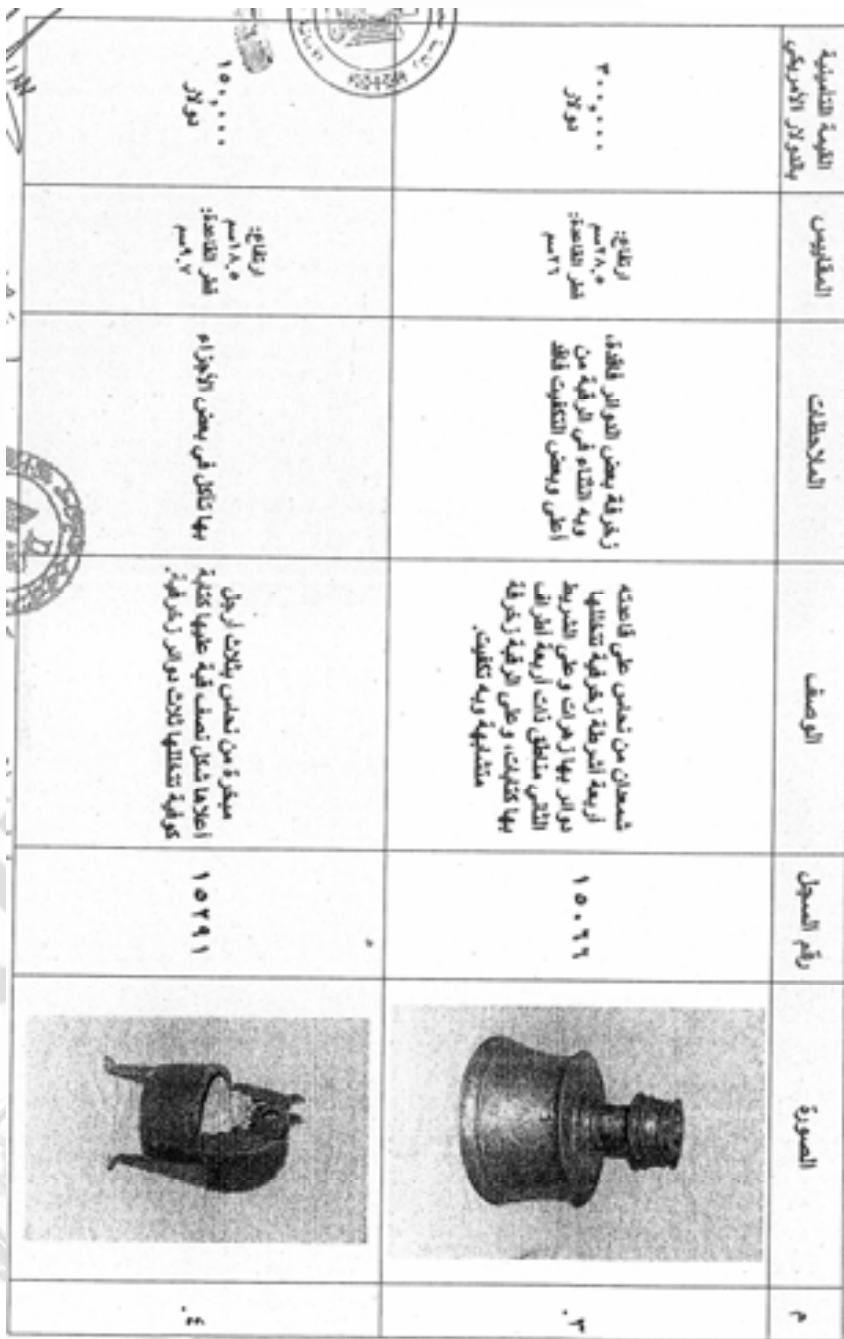 م
الصورة
رقم السجل
الوصف
الملاحظات
المقاييس
القيمة التأمينية
بالدولار الأمريكي
٣.
١٥٠٦٦
شمعدان من نحاس على قاعدته
أربعة أشرطة زخرفية تتخللها
دوائر بها زهرات وعلى الشريط
الثاني مناطق ذات أربعة أطراف
بها كتابات، وعلى الرقبة زخرفة
متشابهة وبه تكفيت.
زخرفة بعض الدوائر فاقدة،
وبه انثناء في الرقبة من
أعلى وبعض التكفيت فاقد
ارتفاع:
٢٨,٥سم
قطر القاعدة:
٢٦سم
٣٠٠,٠٠٠
دولار
٤.
١٥٢٩١
مبخرة من نحاس بثلاث أرجل
أعلاها شكل نصف قبة عليها كتابة
كوفية تتخللها ثلاث دوائر زخرفية
بها تآكل في بعض الأجزاء
ارتفاع:
١٨,٥سم
قطر القاعدة:
٩,٧سم
١٥٠,٠٠٠
دولار